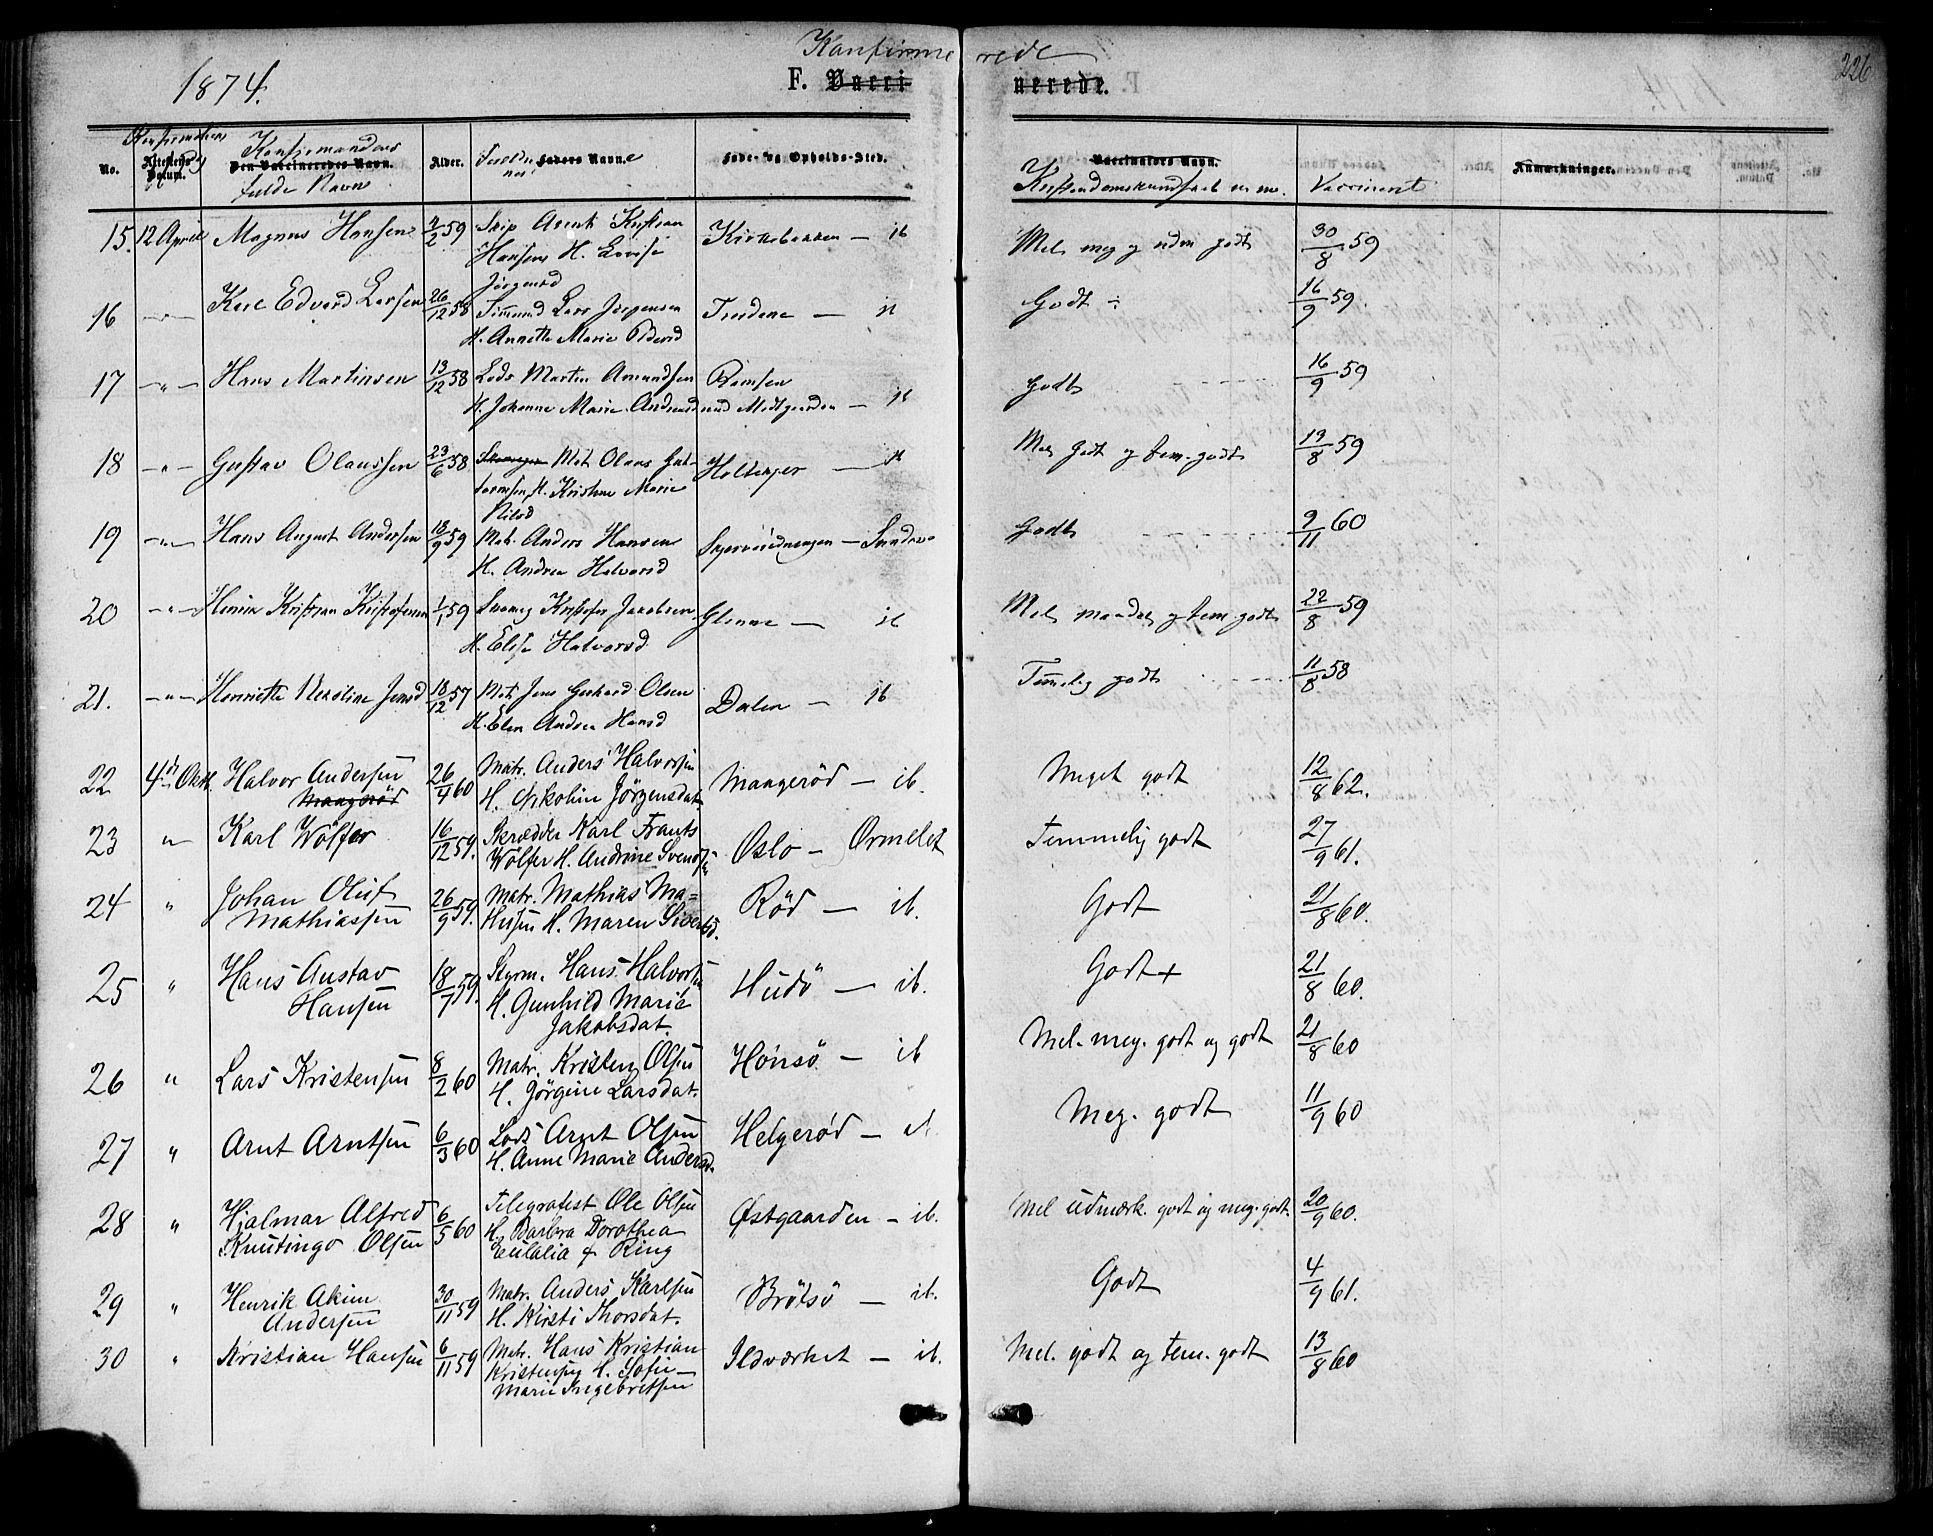 Konfirme rede
226
1874.
F. Vacci nerede.
Konfirmations Dag
Konfirmandens
No. Attestens Datum. Den Vaccineredes Navn. Alder. Forældrenes Faders Navn. Føde- og Opholds-Sted. Vaccinators Navn. Anmærkninger.
fulde Navn
Kristendomskundskab m. m. Vaccineret
15. 12 April Magnus Hansen 4/2 59 Skip Arent Kristian Kirkebakken — ib Mel. meg. g 30/8 59
Hansen H. Lovise
Jörgensd
16 —„— Karl Edvard Larsen 26/12 58 Tømmd Lars Jörgensen — ib Godt ÷ 16/9 59
H. Annette Marie
17 —„— Hans Martinsen 13/12 58 Lods Martin Amundsen Godt 16/9 59
H. Johanne Marie Andersd — ib
18 —„— Gustav Olaussen 23/6 58 Mat. Olaus Gut- Holtekjer — ib Mel. Godt og tem. godt 19/8 59
tormsen H. Kristine Marie
Nilsd
19 —„— Hans August Andersen 18/9 59 Mat. Anders Hansen — Godt 9/11 60
H. Andrea Halvorsd
20 —„— Kristian Kristofersen 1/1 59 Kristofer Jacobsen Glenne — ib Mel. maadel. g tem. godt 22/8 59
H. Elise Halvorsd
21. —„— Henriette Karoline Jensd 18/12 57 Mat. Jens Gerhard Olsen Dalen — ib Temmelig godt 11/8 58
H. Elen Andrea Hansd
22 4de Oktb. Halvor Andersen 26/4 60 Matr. Anders Halvorsen Mangerød — ib. Meget godt 12/8 62.
Mangerød H. Nikolin Jörgensdat
23 „ Karl Wölfer 16/12 59. Skrædder Karl Frants Oslo — Ormelet Temmelig godt 27/9 61.
Wölfer H. Andrine Svendsen
24 „ Johan Oluf 26/9 59. Matr. Mathias Ma= Rød — ib. Godt 21/8 60.
Mathiassen thisen H. Maren Sivertsd.
25 „ Hans Gustav 18/7 59. Styrm. Hans Halvorsen Hudö — ib. Godt + 21/8 60.
Hansen H. Gunhild Marie
Jakobsdat.
26 „ Lars Kristensen 8/2 60 Matr. Kristen Olsen Hönsö — ib Mel. meg. godt og godt 21/8 60
H. Jörgine Larsdat.
27 „ Arnt Arntsen 6/3 60 Lods Arnt Olsen Helgerød — ib. Meg. godt 11/9 60
H. Anne Marie Andersd.
28 „ Hjalmar Alfred 6/5 60 Telegrafist Ole Olsen Østgaarden — ib. Mel udmærk. godt og meg. godt. 20/9 60.
Knutingo Olsen H. Barbra Dorothea
Eulalia f Ring
29 „ Henrik Akim 30/11 59 Matr. Anders Karlsen Brötsö — ib. Godt 4/9 61.
Andersen H. Kirsti Thorsdat.
30 „ Kristian Hansen 6/11 59 Matr. Hans Kristian Ildværket — ib. Mel. godt og tem. godt 13/8 60
Kristensen H. Sofie
Marie Ingebretsen